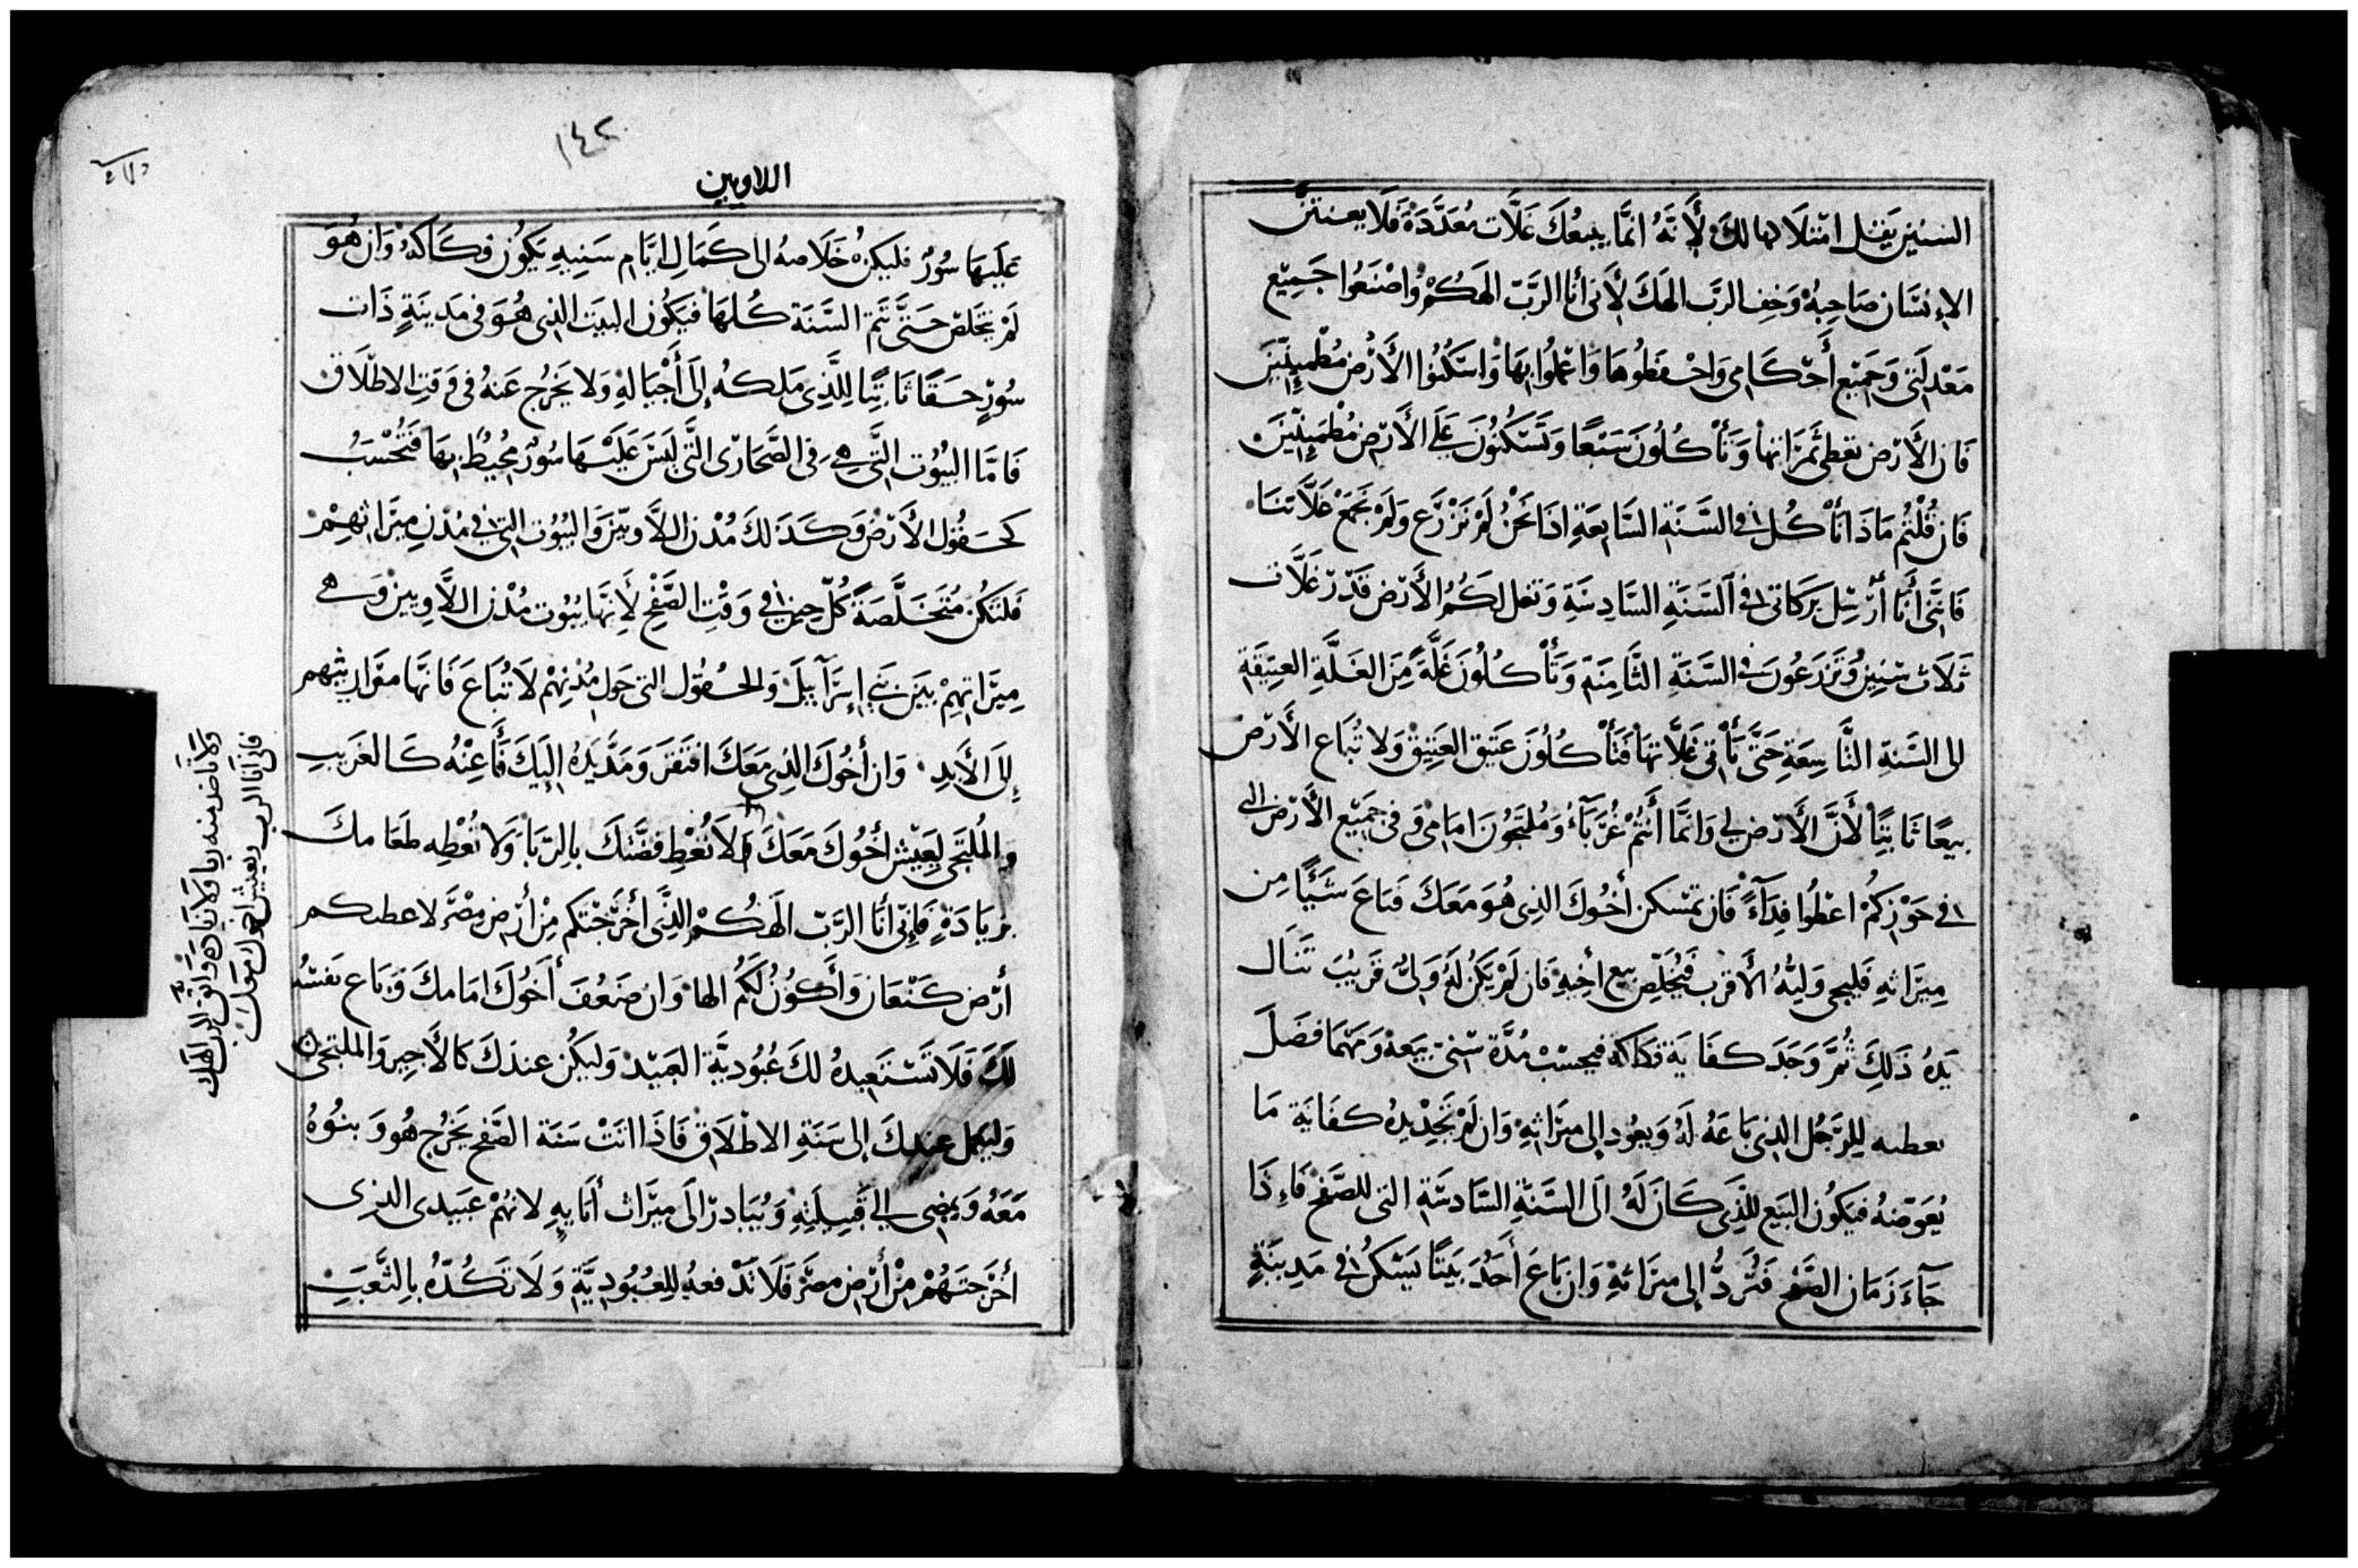 السنين يقل امتلاكها لك لأنه انما يبيعك غلات معددة فلا يعنتن
الإنسان صاحبه وخف الرب الهك لأني أنا الرب الهكم واصنعوا جميع
معدلتي وجميع أحكامي واحفظوها واعملوا بها واسكنوا الأرض مطمئنين
فان الأرض تعطي ثمراتها وتأكلون شبعا وتسكنون على الأرض مطمئنين
فان قلتم ماذا نأكل في السنة السابعة اذا نحن لم نزرع ولم نجمع غلاتنا
فانني أنا أرسل بركاتي في السنة السادسة وتغل لكم الأرض قدر غلات
ثلاث سنين وتزرعون في السنة الثامنة وتأكلون غلة من الغلة العتيقة
الى السنة التاسعة حتى تأتي غلاتها فتأكلون عتيق العتيق ولا تباع الأرض
بيعا ثابتا لأن الأرض لي وانما أنتم غرباء وملتجون امامي وفي جميع الأرض التي
في حوزكم اعطوا فداء فان تمسكن أخوك الذي هو معك فباع شيئا من
ميراثه فليجي وليه الأقرب فيخلص بيع أخيه فان لم يكن له ولي قريب تنال
يده ذلك ثم وجد كفاية فكاكه فيحسب مدة سني بيعه ومهما فضل
يعطيه للرجل الذي باعه له ويعود إلى ميراثه وان لم تجد يده كفاية ما
يعوضه فيكون البيع للذي كان له الى السنة السادسة التي للصفح فإذا
جاء زمان الصفح فترد إلى ميراثه وان باع أحد بيتا يسكن في مدينة
١٤٢
اللاويين
عليها سور فليكن خلاصه الى كمال ايام سنيه يكون فكاكه وان هو
لم يتخلص حتى تتم السنة كلها فيكون البيت الذي هو في مدينة ذات
سور حقا ثابتا للذي ملكه إلى أجياله ولا يخرج عنه في وقت الاطلاق
فاما البيوت التي هي في الصحاري التي ليس عليها سور محيط بها فتحسب
كحقول الأرض وكذلك مدن اللاويين والبيوت التي في مدن ميراثهم
فلتكن متخلصة كل حين في وقت الصفح لأنها بيوت مدن اللاويين وهي
ميراثهم بين بني إسرآييل والحقول التي حول مدنهم لا تباع فانها مواريثهم
إلى الأبد وان أخوك الذي معك افتقر ومد يده إليك فأعنه كالغريب
والملتجي ليعيش أخوك معك ولا تعط فضتك بالربا ولا تعطه طعامك
بزيادة فإني أنا الرب الهكم الذي أخرجتكم من أرض مصر لاعطيكم
أرض كنعان وأكون لكم الها وان ضعف أخوك امامك وباع نفسه
لك فلا تستعبده لك عبودية العبيد وليكن عندك كالأجير والملتجي
وليعمل عندك إلى سنة الاطلاق فاذا اتت سنة الصفح يخرج هو وبنوه
معه ويمضي الى قبيلته ويبادر الى ميراث أبايه لانهم عبيدي الذي
أخرجتهم من أرض مصر فلا تدفعه للعبودية ولا تكده بالتعب
فاني أنا الرب يعيش اخوك معك
ولا تأخذ منه ربا ولا زيادة واتق الرب الهك